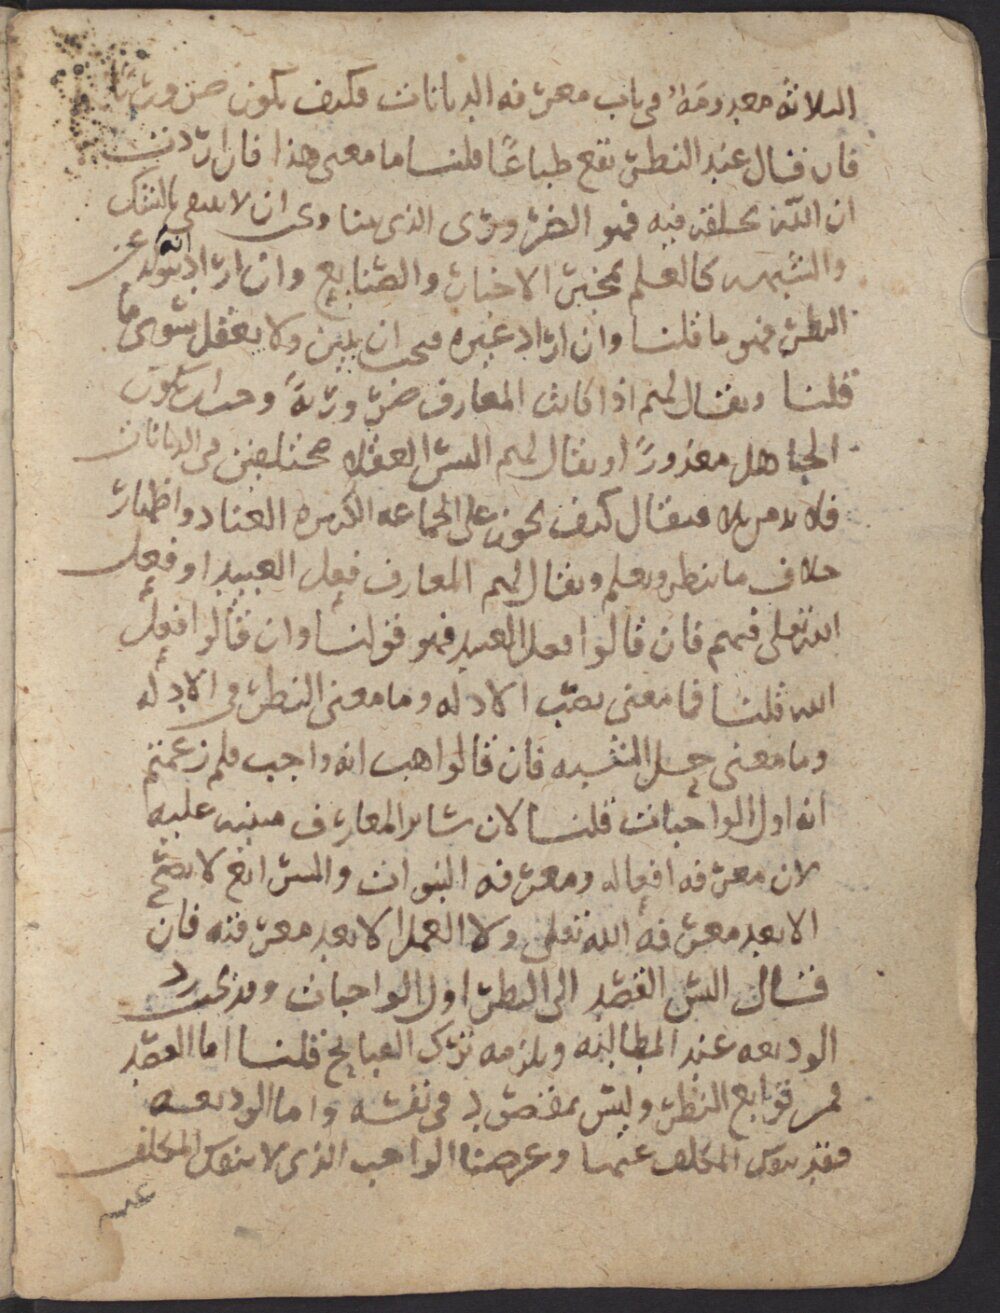 الثلاثة معدومة في باب معرفة الديانات فكيف يكون ضروريًا
فان قال عند النظر تقع طباعًا قلنا ما معنى هذا فان اردت
ان الله يخلقه فيه فهو الضروري الذي بينا وكان لا ينتفي بالشك
والشبهه كالعلم بمخبر الاخبار والصنايع وان اراد انه يتولد عن
النظر فهو ما قلنا وان اراد غيره فيجب ان يبين ولا يعقل سوى ما
قلنا ويقال لهم اذا كانت المعارف ضرورية وجب ان يكون
الجاهل معذورًا ويقال لهم اليس العقلا مختلفين في الديانات
فلا بد من بلا فيقال كيف يجوز على الجماعه الكثيره العناد واظهار
خلاف ما ينظر ويعلم ويقال لهم المعارف فعل العبيد او فعل
الله تعلى فيهم فان قالوا فعل العبيد فهو قولنا وان قالوا فعل
الله قلنا فما معنى نصب الادله وما معنى النظر في الادله
وما معنى حل الشبه فان قالوا هب انه واجب فلم زعمتم
انه اول الواجبات قلنا لان سائر المعارف مبنيه عليه
لان معرفة افعاله ومعرفة النبوات والشرائع لا يصح
الا بعد معرفة الله تعلى ولا العمل الا بعد معرفته فان
قال اليس القصد الى النظر اول الواجبات وقد يجب رد
الوديعه عند المطالبه ويلزمه ترك القبايح قلنا اما القصد
فمن توابع النظر وليس بمقصود في نفسه واما الوديعه
فقد ينفك المكلف عنها وغرضنا الواجب الذي لا ينفك المكلف
عنه